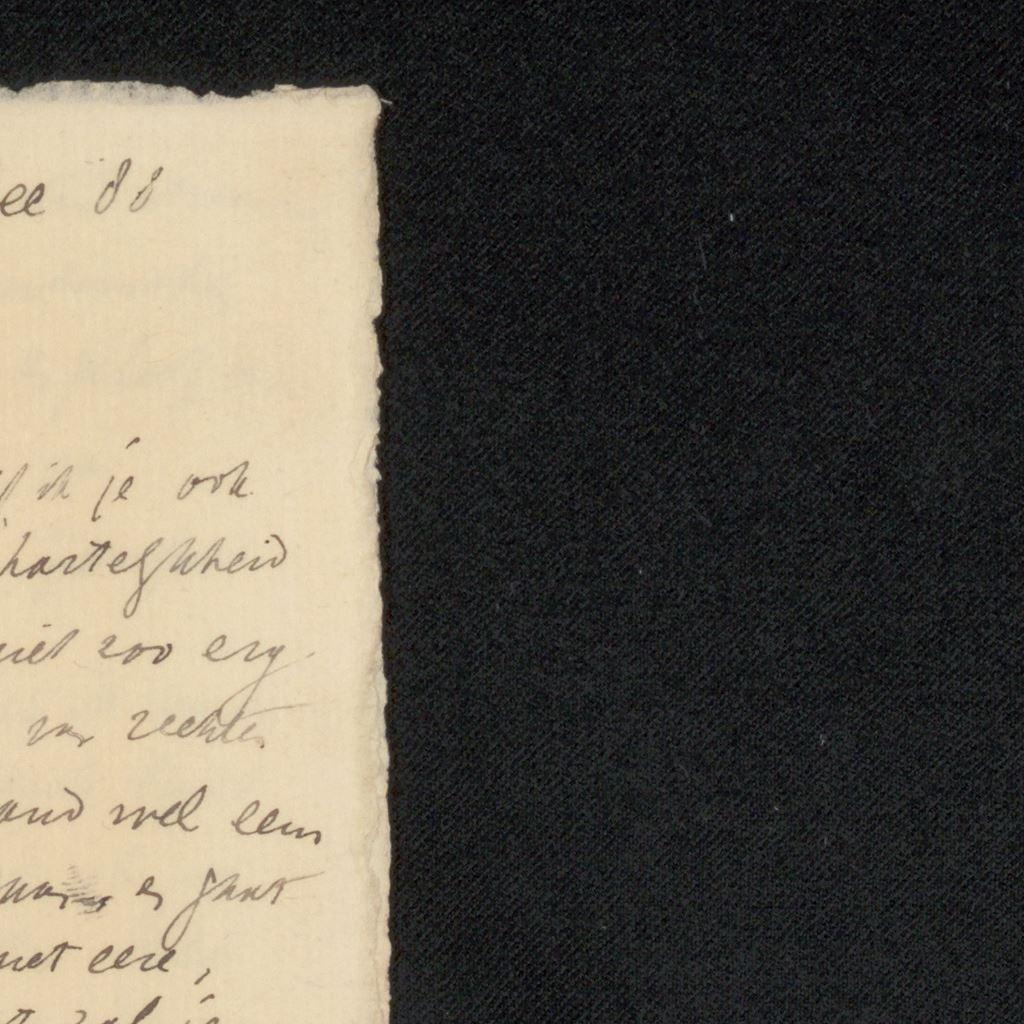 ee 88
ik je ook
hartelykheid
niet zoo erg
van rechte
and wel eens
maar er gaat
met eere,
zal je